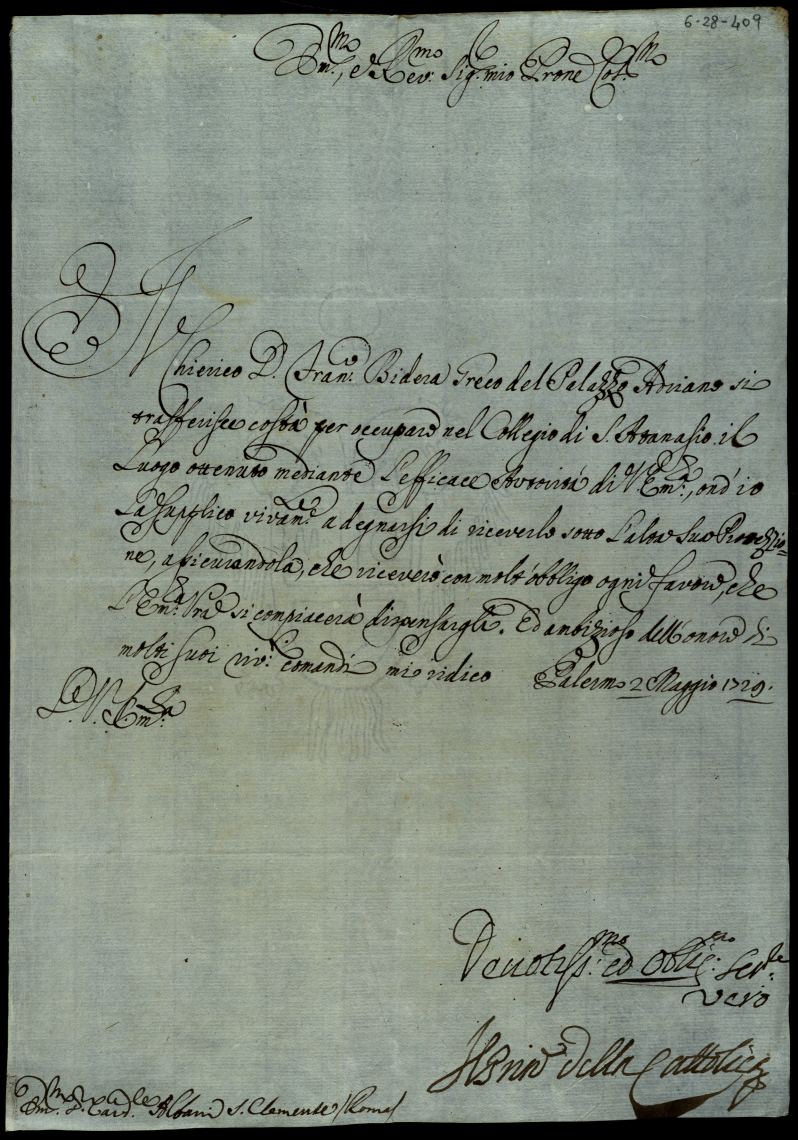 6-28-409
Em.mo, e Rev.mo Sig.r mio P̄rone Col.mo
Il
Chierico D. Fran.co Bidera Greco del Palazzo Adriano si
trasferisce costà per occupare nel Collegio di S. Atanasio il
Luogo ottenuto mediante l'efficace Autorità di V. Em.za, ond'io
La supplico vivam.te a degnarsi di riceverlo sotto l'alta Sua Protezzio=
ne, assicurandola, che riceverò con molt'obbligo ogni favore, che
l'Em.za V̄ra si compiacerà dispensargli. Ed ambizioso dell'onore di
molti suoi riv.ti comandi mi ridico Palermo 2 Maggio 1729.
Di V. Em.za
Devotiss.mo ed Obblig.mo Ser.re
vero
Il Prin.e della Cattolica
Em.mo S. Card.le Albani S. Clemente / Roma /